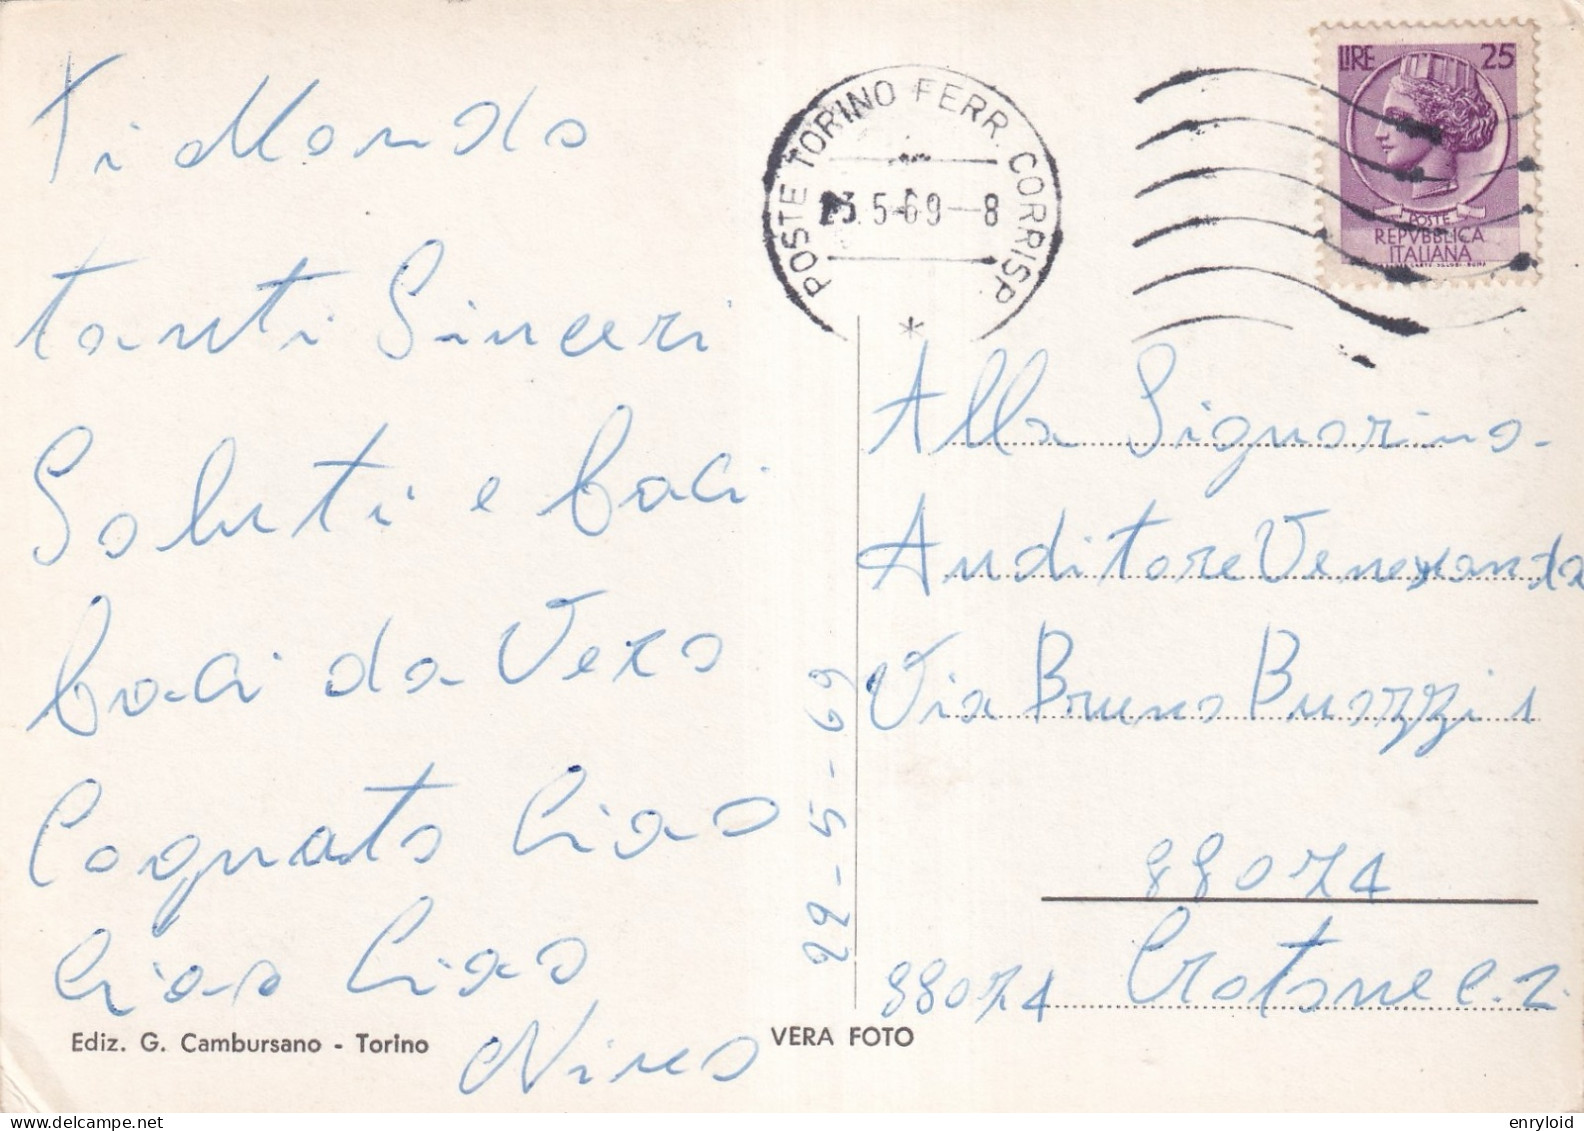 Ti Mando
tanti Sinceri
Saluti e baci
baci da Vero
Cognato Ciao
Ciao Ciao
Nino
Ediz. G. Cambursano - Torino
VERA FOTO
22-5-69
POSTE TORINO FERR. CORRISP.
23.5-69-8
*
LIRE 25
POSTE
REPVBBLICA
ITALIANA
Alla Signorina
Auditore Veneranda
Via Bruno Buozzi 1
88074
88074 Crotone C.Z.
enryloid